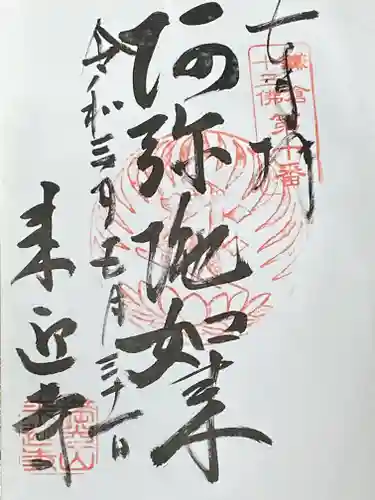 奉拝
鎌倉
十三佛第十番
阿弥陀如来
令和三年五月三十一日
来迎寺